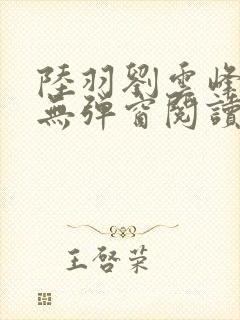 陸羽劉雲峰
無彈窗閱讀
王啓荣